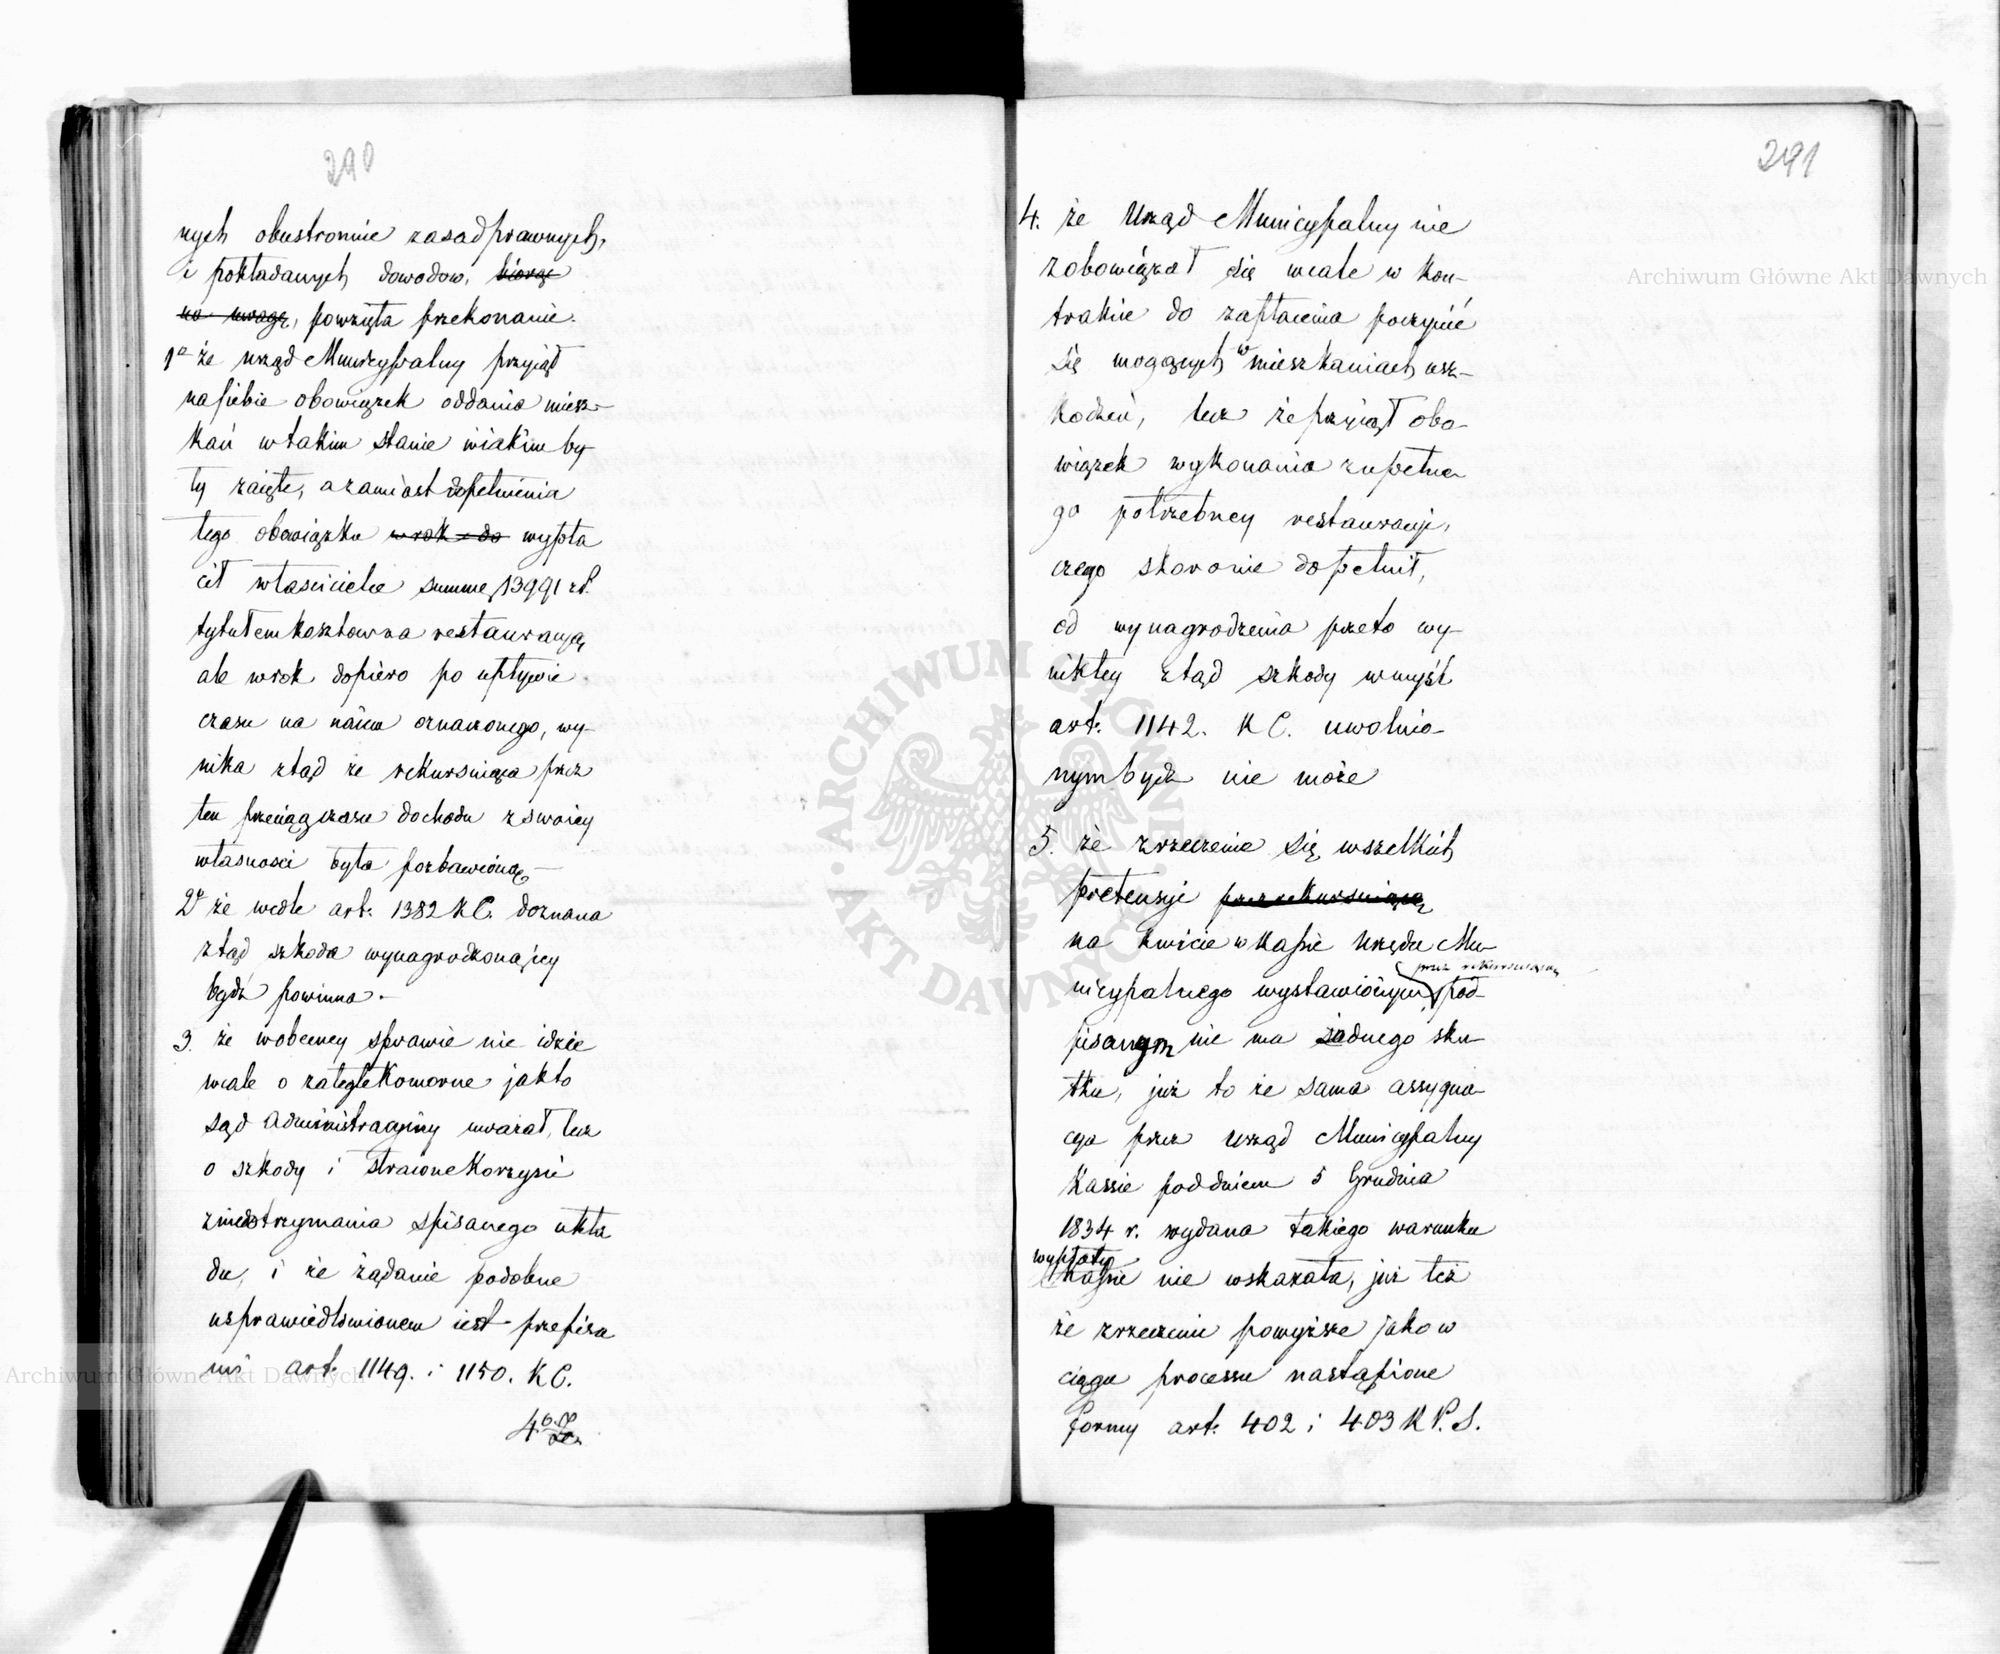 290
nych obustronnie zasad prawnych,
i pokładanych dowodow, biorąc
na uwagę, powzięła przekonanie.
1o że urząd Municypalny przyjął
na siebie obowiązek oddania miesz-
kań w takim stanie wiakim by-
ły zaięte, a zamiast dopełnienia
tego obowiązku w rok do wypła
cił włascicielce summę 13991 zł.
tytułem kosztow na restauracją
ale w rok dopiero po upływie
czasu na náiem oznaczonego, wy-
nika ztąd że rekursuiąca przez
ten przeciąg czasu dochodu z swoiey
własnosci była pozbawioną.-
2o że wedle art. 1382 K C. doznana
ztąd szkoda wynagrodzoną jey
bydź powinna.-
3. że wobecney sprawie nie idzie
wcale o zaległe Komorne jak to
Sąd Administracyjny uważał, lecz
o szkody i stracone Korzysci
z niedotrzymania spisanego ukła
du, i że żądanie podobne
usprawiedliwionem iest przepisa
mi art. 1149. i 1150. K C.
4o
291
4. że Urząd Municypalny nie
zobowiązał się wcale w Kon-
trakcie do zapłacenia poczynić
się mogących w mieszkaniach usz-
kodzeń, lecz że przyiął obo-
wiązek wykonania zupełne
go potrzebney restauracyi,
czego skoro nie dopełnił,
od wynagrodzenia przeto wy-
nikłey ztąd szkody w myśl
art. 1142. K C. uwolnio-
nym bydź nie może
5. że zrzeczenie się wszelkich
pretensyi przez rekursuiącą
na kwicie w Kassie Urzędu Mu-
przez rekursuiącą
nicypalnego wystawionym pod-
pisanym nie ma żadnego sku-
tku, już to że sama assygna-
cya przez Urząd Municypalny
Kassie pod dniem 5 Grudnia
1834 r. wydana takiego warunku
wypłaty
Kassie nie wskazała, już też
że zrzeczenie powyższe jako w
ciągu processu nastąpione
formy art. 402 i 403 K P. S.
Archiwum Główne Akt Dawnych
Archiwum Główne Akt Dawnych
ARCHIWUM GŁÓWNE AKT DAWNYCH